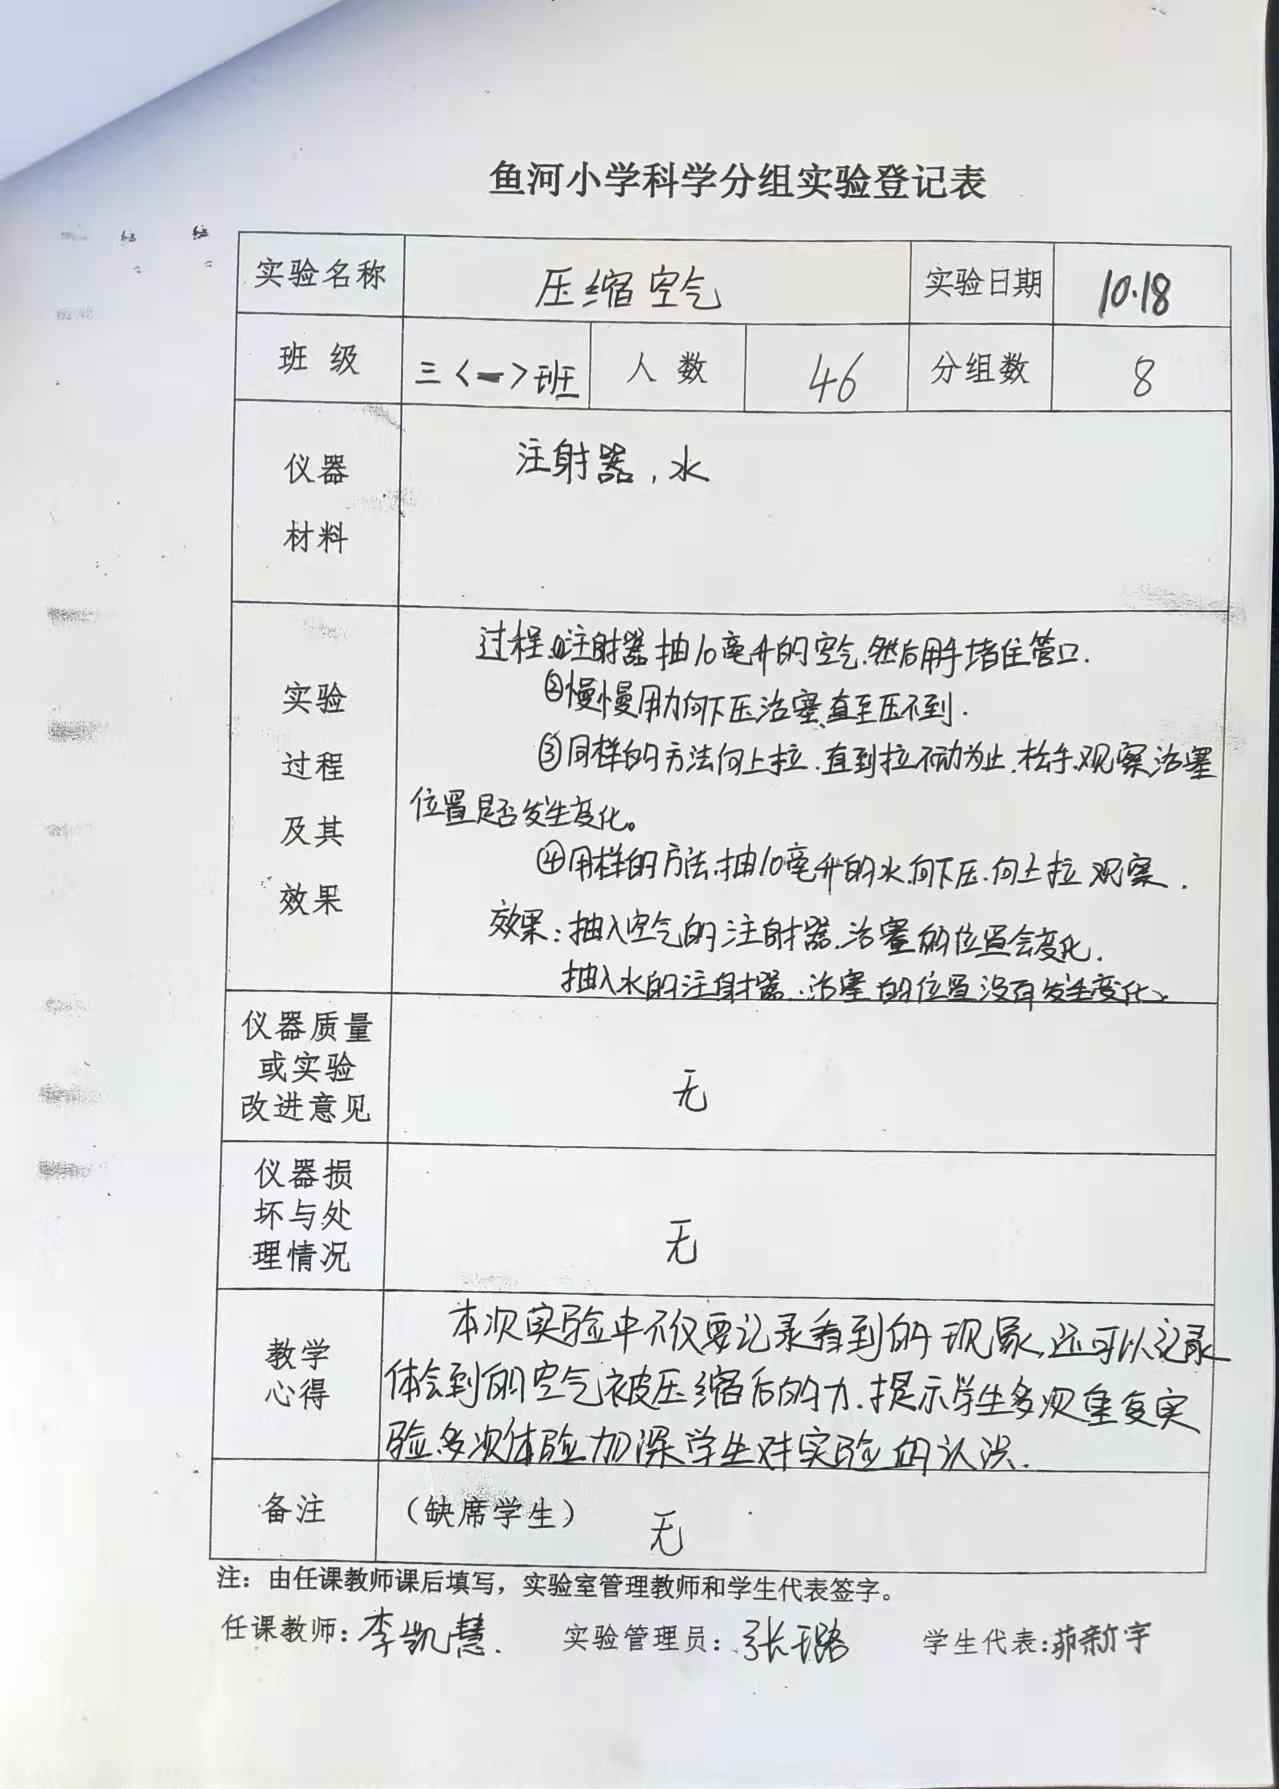 鱼河小学科学分组实验登记表
实验名称 压缩空气 实验日期 10.18
班级 三<一>班 人数 46 分组数 8
仪器
材料
注射器，水
实验
过程
及其
效果
过程①注射器抽10毫升的空气.然后用手堵住管口.
②慢慢用力向下压活塞直至压不到.
③同样的方法向上拉.直到拉不动为止.松手.观察活塞
位置是否发生变化。
④用样的方法.抽10毫升的水.向下压.向上拉观察.
效果：抽入空气的注射器.活塞的位置会变化.
抽入水的注射器.活塞的位置没有发生变化.
仪器质量
或实验
改进意见
无
仪器损
坏与处
理情况
无
教学
心得
本次实验中不仅要记录看到的现象,还可以记录
体会到的空气被压缩后的力.提示学生多次重复实
验.多次体验加深学生对实验的认识.
备注 （缺席学生） 无
注：由任课教师课后填写，实验室管理教师和学生代表签字。
任课教师：李凯慧. 实验管理员：张璐 学生代表:茆新宇